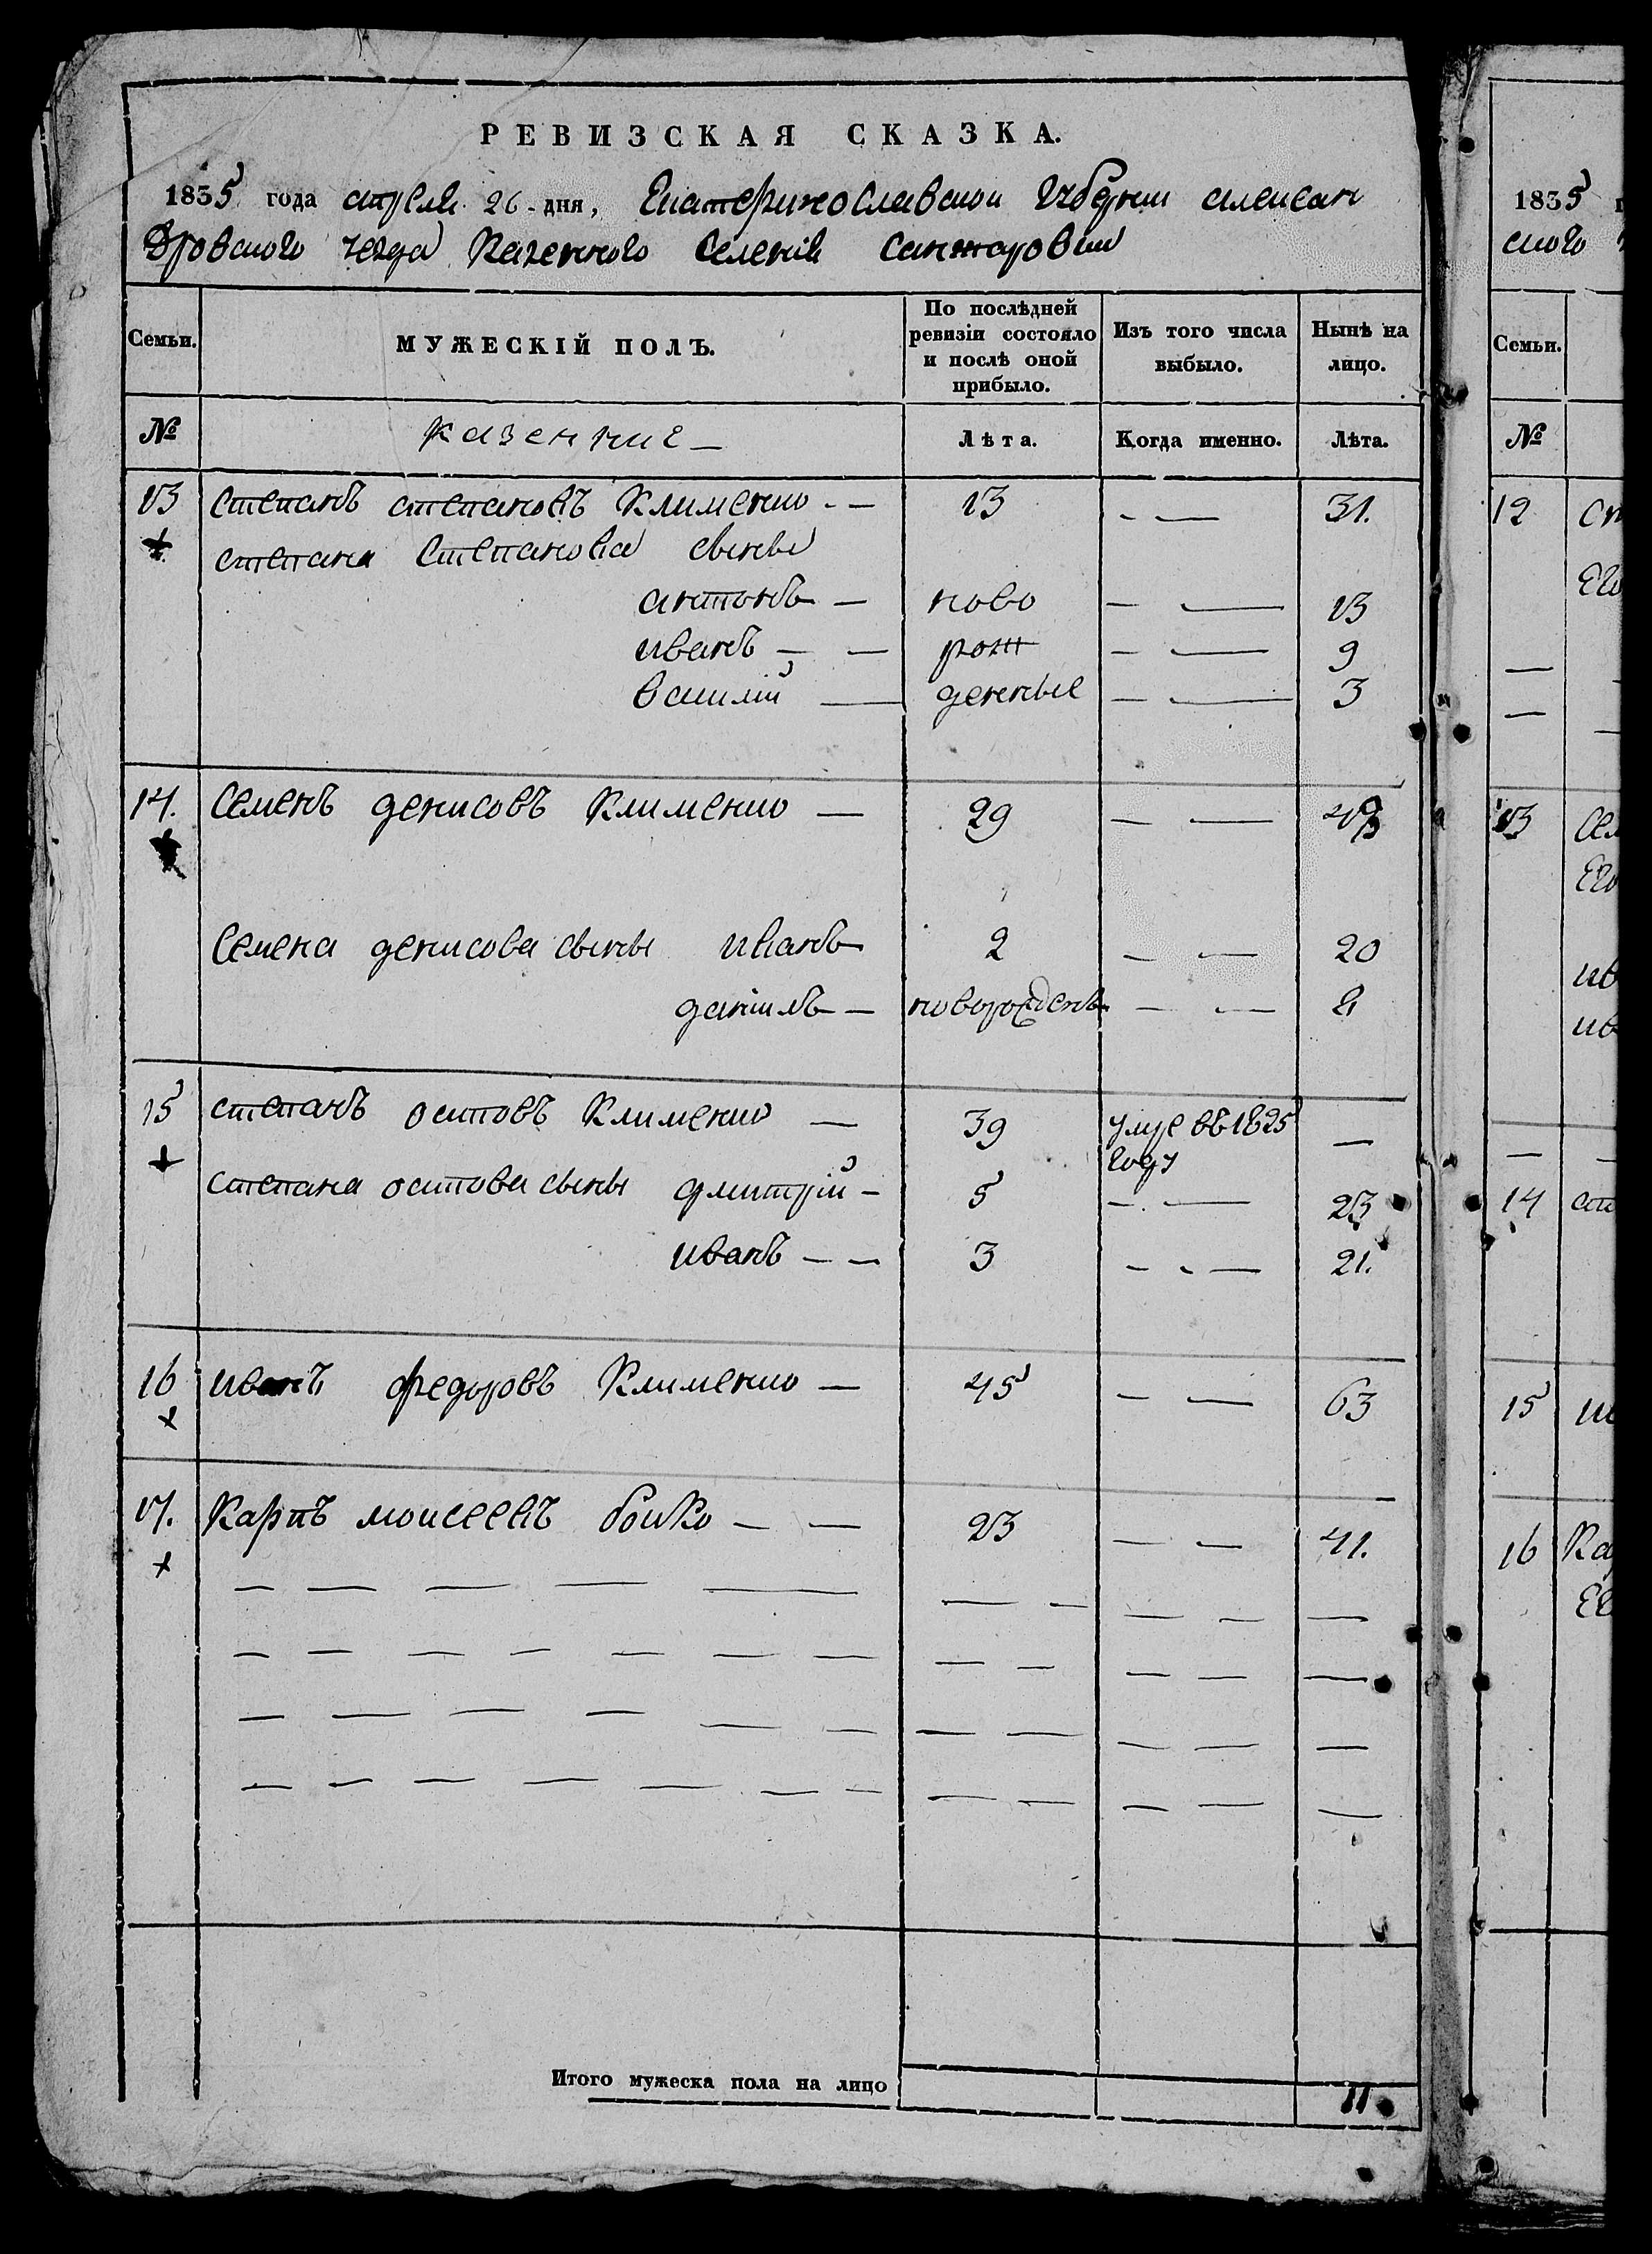 РЕВИЗСКАЯ СКАЗКА.
1835 года апреля 26 - дня, Екатеринославской Губернии александ
дровского уезда Казенного Селенiя Санжаровки
Семьи. МУЖЕСКІЙ ПОЛЪ. По послѣдней ревизіи состояло и послѣ оной прибыло. Изъ того числа выбыло. Нынѣ на лицо.
№ казенние — Лѣта. Когда именно. Лѣта.
13 степанъ степановъ Клименко - — 13 - — 31.
степана Степанова сынвы
антонъ — ново — — 13
иванъ — — рож — — 9
василій — денные — — 3
14. Семенъ денисовъ Клименко — 29 — —
Семена денисова сыны иванъ 2 — — 20
данiилъ — новорожденъ — —
15 степанъ осиповъ Клименко — 39 умре въ 1825 —
году
степана осипова сыны дмитрій - 5 — — 23
иванъ — — 3 — - — 21.
16 иванъ федоровъ Клименко — 45 — — 63
17. Карпъ моисеевъ бойко — — 23 — — 41.
Итого мужеска пола на лицо 11
1835
ского
Семьи.
№
12
Его
13
Его
ив
ив
14
15
16 Ка